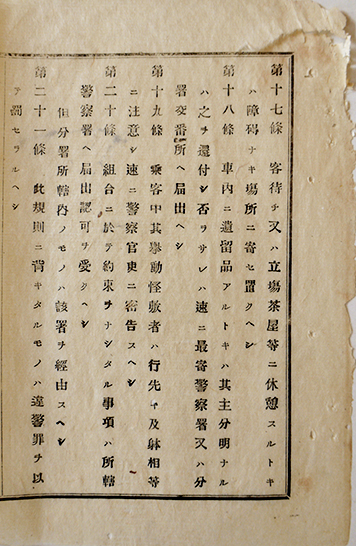 第十七條 客待チ又ハ立塲茶屋等ニ休憩スルトキ
ハ障碍ナキ塲所ニ寄セ置クヘシ
第十八條 車內ニ遺留品アルトキハ其主分明ナル
ハ之ヲ還付シ否ラサレハ速ニ最寄警察署又ハ分
署交番所ヘ届出ヘシ
第十九條 乘客中其擧動怪敷者ハ行先キ及躰相等
ニ注意シ速ニ警察官吏ニ密告スヘシ
第二十條 組合ニ於テ約束ヲナシタル事項ハ所轄
警察署ヘ届出認可ヲ受クヘシ
但分署所轄內ノモノハ該署ヲ經由スヘシ
第二十一條 此規則ニ背キタルモノハ違警罪ヲ以
テ罰セラルヘシ